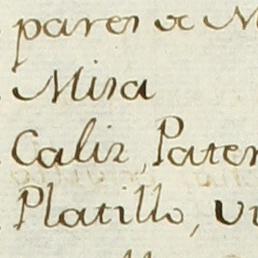 pares de M
Misa
Caliz, Paten
Platillo, vi